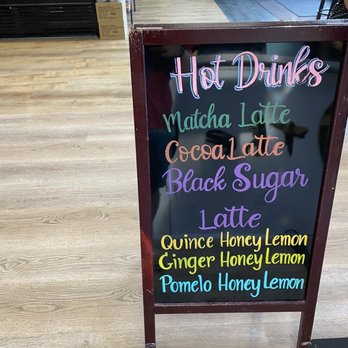 Hot Drinks
Matcha Latte
Cocoa Latte
Black Sugar
Latte
Quince Honey Lemon
Ginger Honey Lemon
Pomelo Honey Lemon